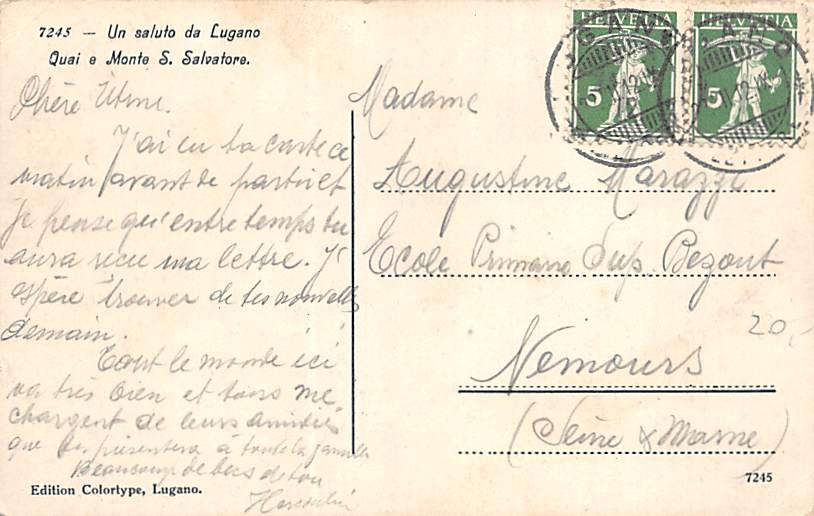 7245 — Un saluto da Lugano
Quai e Monte S. Salvatore.
HELVETIA
HELVETIA
5
5
Chère
J'ai eu ta carte ce
matin avant de partir et
je pense qu'entre temps tu
aura recu ma lettre. J'
espère trouver de tes nouvelles
demain.
Tout le monde ici
va très bien et tous me
chargent de leurs amitiés
que tu présentera à toute la famille
Beaucoup de de ton
Madame
Augustine Marazzi
Ecole Primaire Sup. Bezout
Nemours
(Seine & Marne)
20,-
Edition Colortype, Lugano.
7245